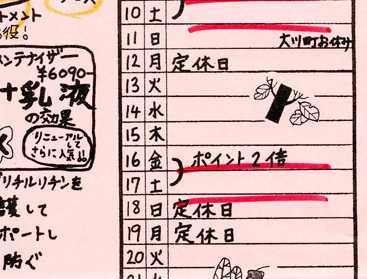 トメント
役!
ンテナイザー
¥6090-
+乳液
の効果
リニューアル
して
さらに人気
グリチルリチンを
護して
ポートし
防ぐ
10 土
11 日 大川町お休み
12 月 定休日
13 火
14 水
15 木
16 金 ポイント2倍
17 土
18 日 定休日
19 月 定休日
20 火